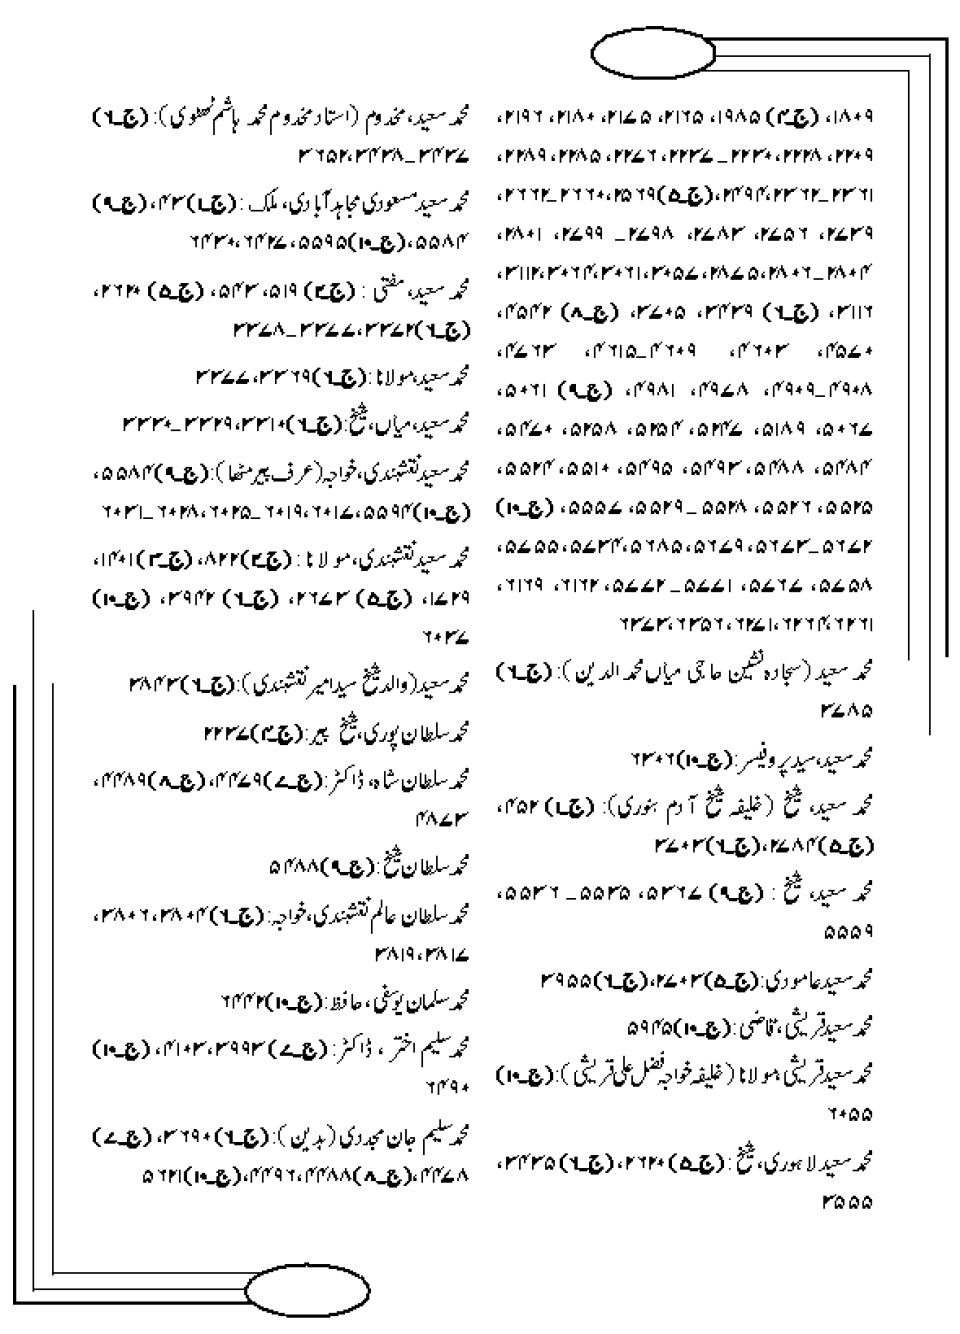 ۱۸۰۹، (ج۔۴) ۱۹۸۵، ۲۱۶۵، ۲۱۷۵، ۲۱۸۰، ۲۱۹۶،
۲۲۰۹، ۲۲۲۸، ۲۲۳۰_۲۲۳۷، ۲۲۷۶، ۲۲۸۵، ۲۲۸۹،
۲۳۶۱_۲۳۶۲، ۲۴۹۴، (ج۔۵) ۲۵۶۹، ۲۶۶۰_۲۶۶۲،
۲۷۳۹، ۲۷۵۶، ۲۷۸۳، ۲۷۹۸_۲۷۹۹، ۲۸۰۱،
۲۸۰۴_۲۸۰۶، ۲۸۷۵، ۳۰۵۷، ۳۰۶۱، ۳۰۶۴، ۳۱۱۲،
۳۱۱۶، (ج۔۶) ۳۴۳۹، ۳۷۰۵، (ج۔۸) ۴۵۴۲،
۴۵۷۰، ۴۶۰۳، ۴۶۰۹_۴۶۱۵، ۴۷۶۳،
۴۹۰۸_۴۹۰۹، ۴۹۷۸، ۴۹۸۱، (ج۔۹) ۵۰۶۱،
۵۰۶۷، ۵۱۸۹، ۵۲۴۷، ۵۲۵۴، ۵۲۵۸، ۵۴۷۰،
۵۴۸۴، ۵۴۸۸، ۵۴۹۳، ۵۴۹۵، ۵۵۱۰، ۵۵۲۴،
۵۵۲۵، ۵۵۲۶، ۵۵۲۸_۵۵۲۹، ۵۵۵۷، (ج۔۱۰)
۵۶۷۲_۵۶۷۳، ۵۶۷۹، ۵۶۸۵، ۵۷۳۴، ۵۷۵۵،
۵۷۵۸، ۵۷۶۷، ۵۷۷۱_۵۷۷۲، ۶۱۶۲، ۶۱۶۹،
۶۲۶۱، ۶۲۶۴، ۶۲۷۱، ۶۳۵۶، ۶۳۷۳
محمد سعید (سجادہ نشین حاجی میاں محمد الدین): (ج۔۶)
۳۷۸۵
محمد سعید، سید پروفیسر: (ج۔۱۰) ۶۳۰۶
محمد سعید، شیخ (خلیفہ شیخ آدم بنوری): (ج۔۱) ۴۵۲،
(ج۔۵) ۲۷۸۴، (ج۔۶) ۳۷۰۳
محمد سعید، شیخ : (ج۔۹) ۵۳۶۷، ۵۵۳۵_ ۵۵۳۶،
۵۵۵۹
محمد سعید عامودی: (ج۔۵) ۲۷۰۳، (ج۔۶) ۳۹۵۵
محمد سعید قریشی، قاضی: (ج۔۱۰) ۵۹۴۵
محمد سعید قریشی، مولانا (خلیفہ خواجہ فضل علی قریشی): (ج۔۱۰)
۶۰۵۵
محمد سعید لاہوری، شیخ: (ج۔۵) ۲۶۲۰، (ج۔۶) ۳۴۳۵،
۳۵۵۵
محمد سعید، مخدوم (استاد مخدوم محمد ہاشم ٹھٹھوی): (ج۔۶)
۳۴۳۷_۳۴۳۸، ۳۶۵۲
محمد سعید مسعودی مجاہد آبادی، ملک : (ج۔۱) ۴۳، (ج۔۹)
۵۵۸۴، (ج۔۱۰) ۵۵۹۵، ۶۴۲۷، ۶۴۳۰
محمد سعید، مفتی : (ج۔۲) ۵۱۹، ۵۴۳، (ج۔۵) ۲۶۲۰،
(ج۔۶) ۳۳۷۲، ۳۳۷۷_۳۳۷۸
محمد سعید، مولانا: (ج۔۶) ۳۳۶۹، ۳۳۷۷
محمد سعید، میاں، شیخ: (ج۔۶) ۳۳۱۰، ۳۳۲۹_۳۳۳۰
محمد سعید نقشبندی، خواجہ (عرف پیر مٹھا): (ج۔۹) ۵۵۸۴،
(ج۔۱۰) ۵۵۹۴، ۶۰۱۷، ۶۰۱۹_۶۰۲۵، ۶۰۲۸_۶۰۳۱
محمد سعید نقشبندی، مولانا: (ج۔۲) ۸۲۲، (ج۔۳) ۱۴۰۱،
۱۷۲۹، (ج۔۵) ۲۶۷۳، (ج۔۶) ۳۹۴۲، (ج۔۱۰)
۶۰۳۷
محمد سعید (والد شیخ سید امیر نقشبندی): (ج۔۶) ۳۸۴۳
محمد سلطان پوری، شیخ پیر: (ج۔۴) ۲۲۳۷
محمد سلطان شاہ، ڈاکٹر: (ج۔۷) ۴۴۷۹، (ج۔۸) ۴۴۸۹،
۴۸۷۳
محمد سلطان شیخ: (ج۔۹) ۵۴۸۸
محمد سلطان عالم نقشبندی، خواجہ: (ج۔۶) ۳۸۰۴، ۳۸۰۶،
۳۸۱۷، ۳۸۱۹
محمد سلمان یوسفی، حافظ: (ج۔۱۰) ۶۴۴۲
محمد سلیم اختر، ڈاکٹر: (ج۔۷) ۳۹۹۳، ۴۱۰۳، (ج۔۱۰)
۶۴۹۰
محمد سلیم جان مجددی (بدین): (ج۔۶) ۳۶۹۰، (ج۔۷)
۴۴۷۸، (ج۔۸) ۴۴۸۸، ۴۴۹۶، (ج۔۱۰) ۵۶۲۱